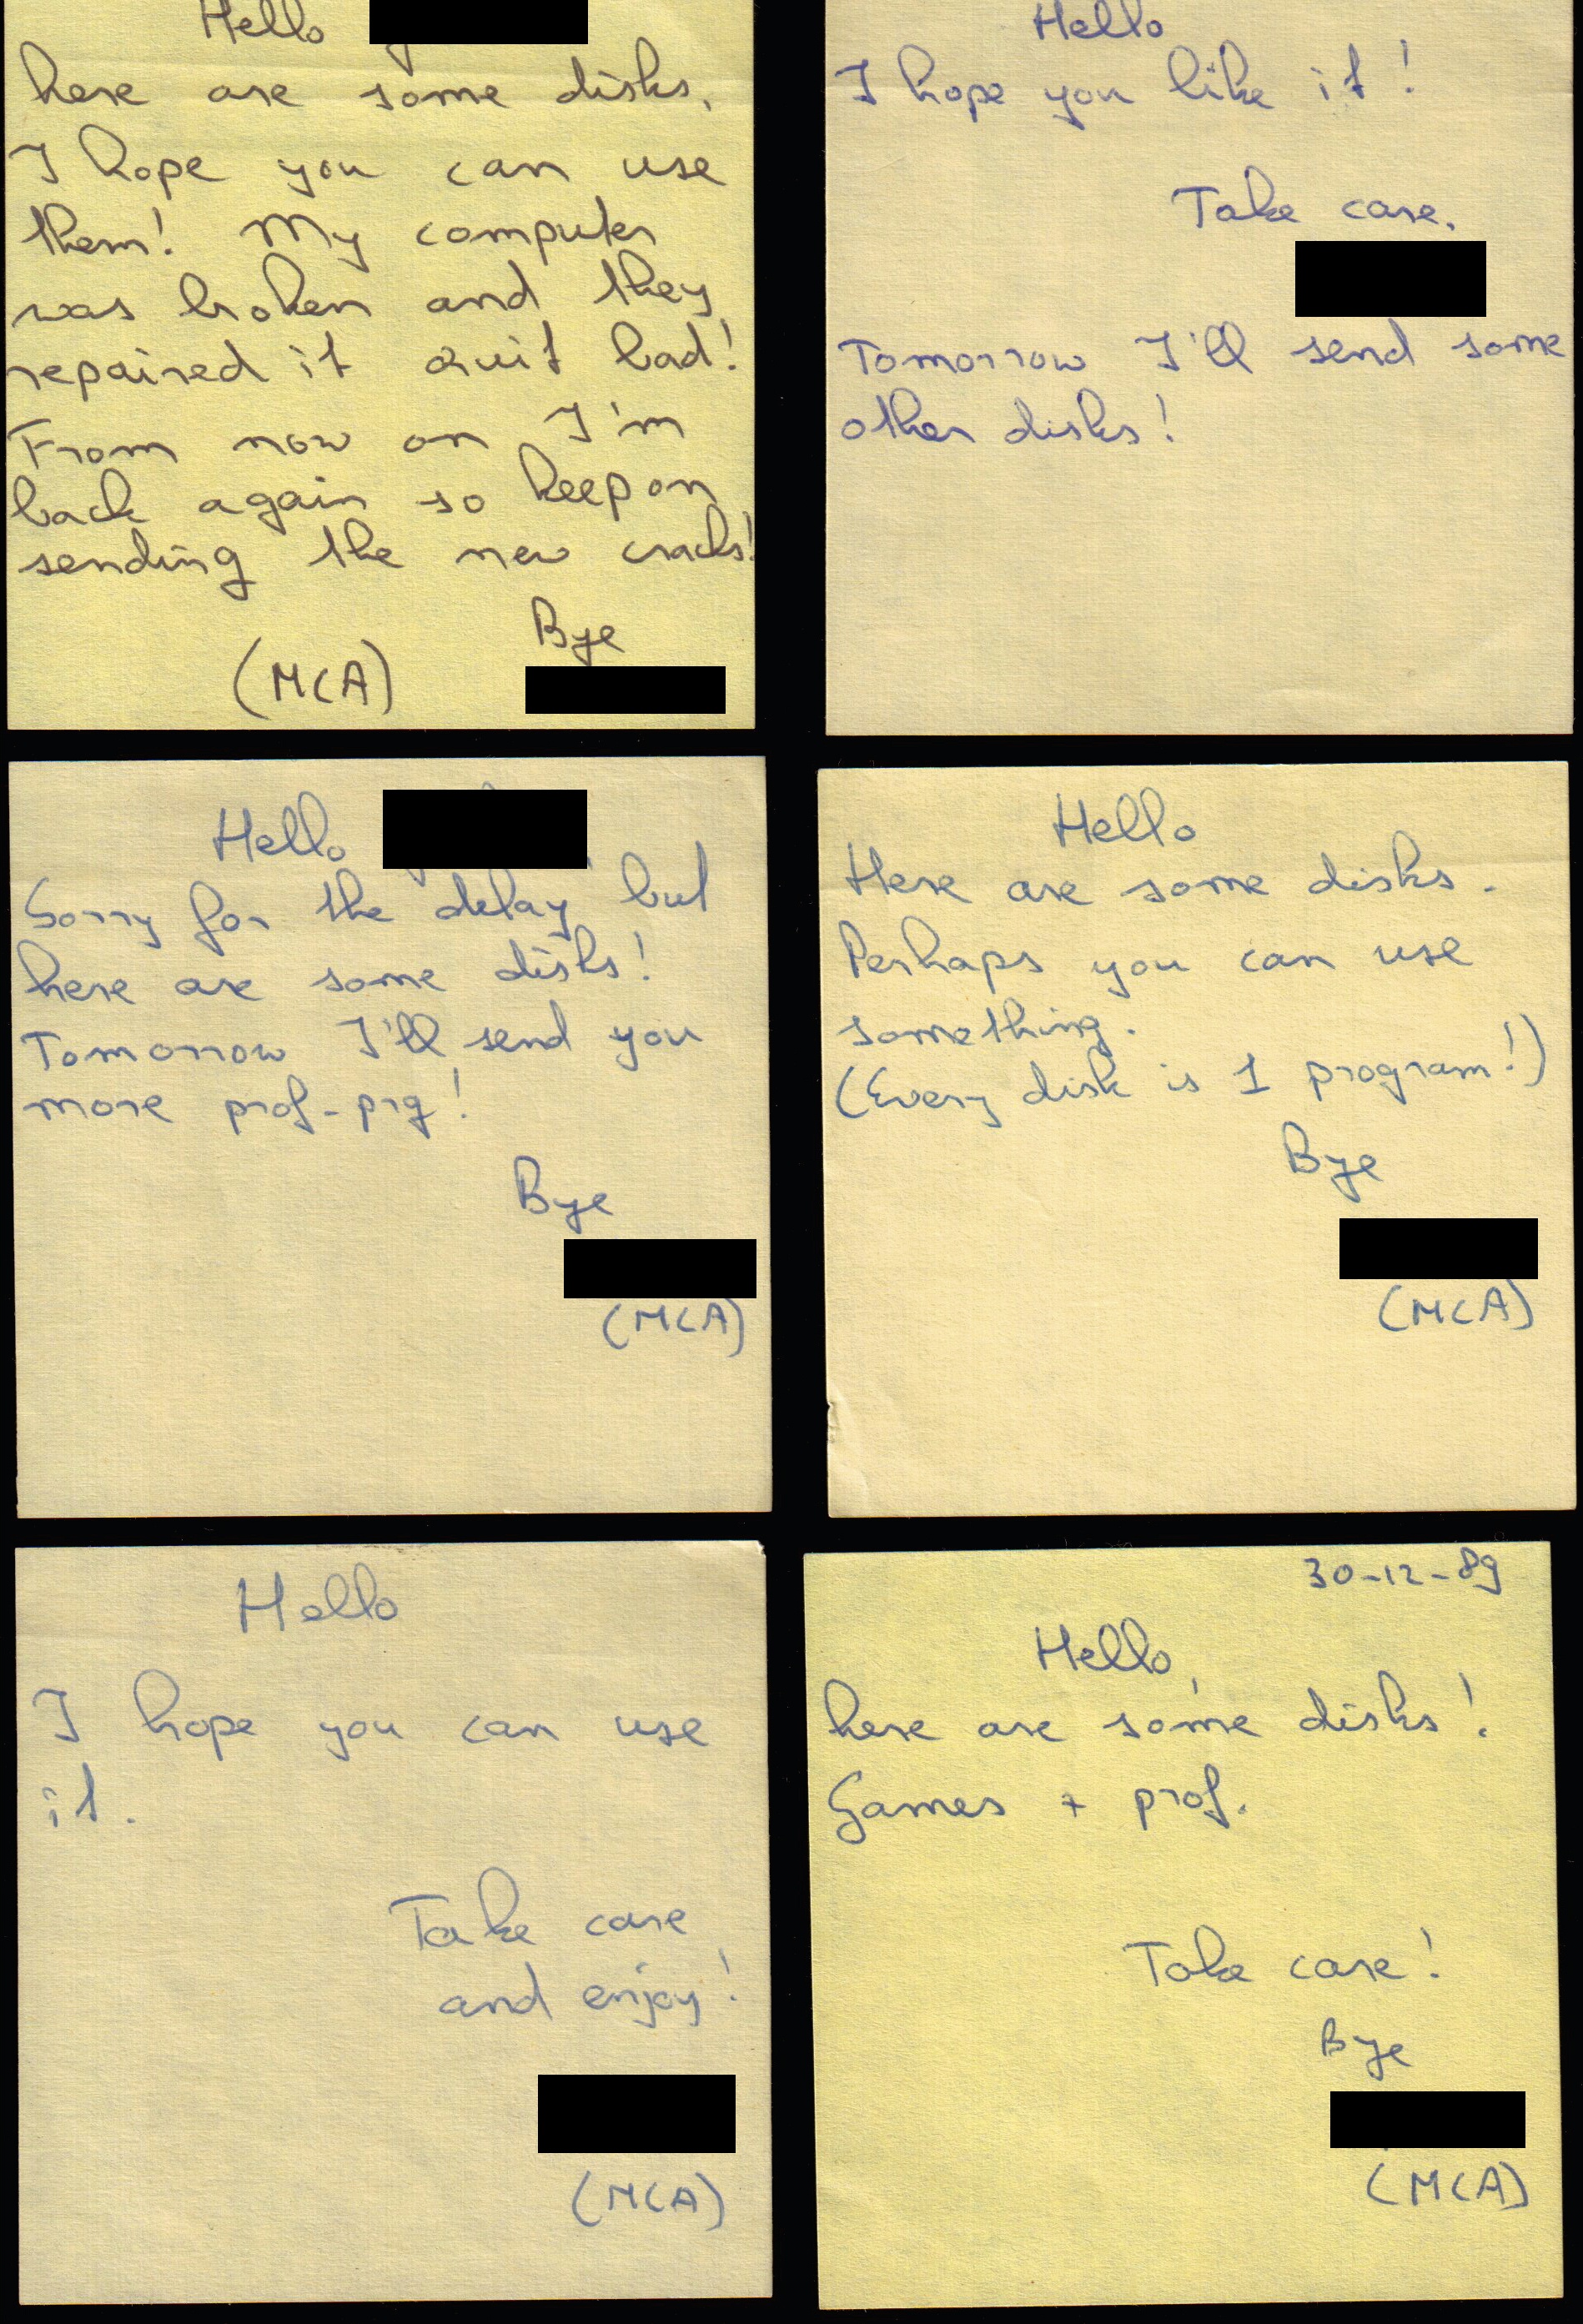 Hello
here are some disks.
I hope you can use
them! My computer
was broken and they
repaired it quit bad!
From now on I'm
back again so keep on
sending the new cracks!
Bye
(MCA)
Hello
I hope you like it!
Take care.
Tomorrow I'll send some
other disks!
Hello
Sorry for the delay but
here are some disks!
Tomorrow I'll send you
more prof-prg!
Bye
(MCA)
Hello
Here are some disks.
Perhaps you can use
something.
(Every disk is 1 program!)
Bye
(MCA)
Hello
I hope you can use
it.
Take care
and enjoy!
(MCA)
30-12-89
Hello,
here are some disks!
Games + prof.
Take care!
Bye
(MCA)